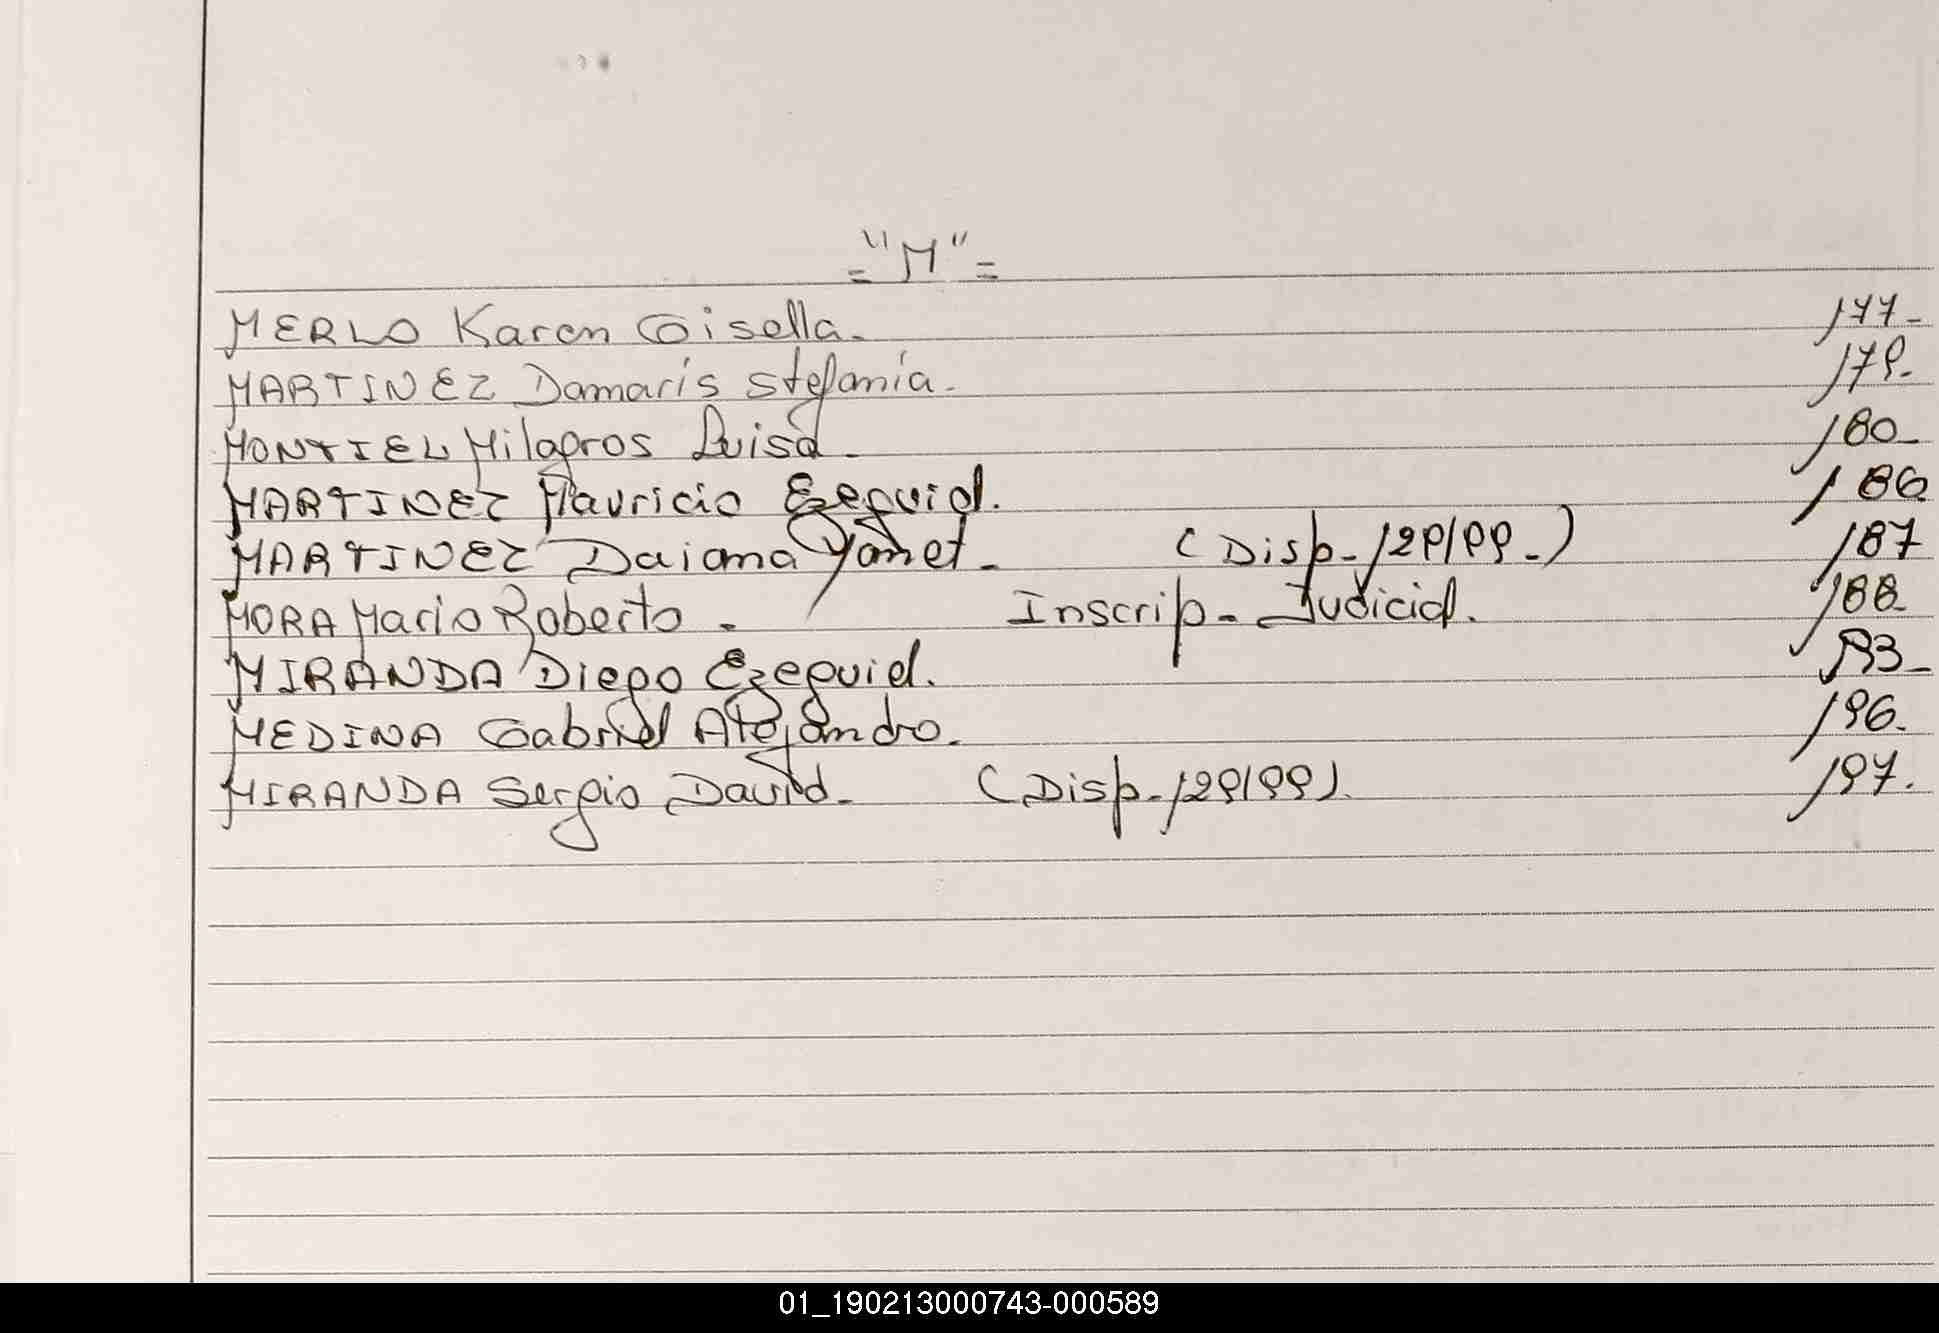 = "M" =
MERLO Karen Gisella. 177-
MARTINEZ Damaris Stefanía. 179.
MONTIEL Milagros Luisa. 180-
MARTINEZ Mauricio Ezequiel. 186
MARTINEZ Daiana Yanet. (Disp. 129/99.) 187
MORA Mario Roberto. Inscrip. Judicial. 188
MIRANDA Diego Ezequiel. 193-
MEDINA Gabriel Alejandro. 196.
MIRANDA Sergio David. (Disp. 129/99). 197.
01_190213000743-000589